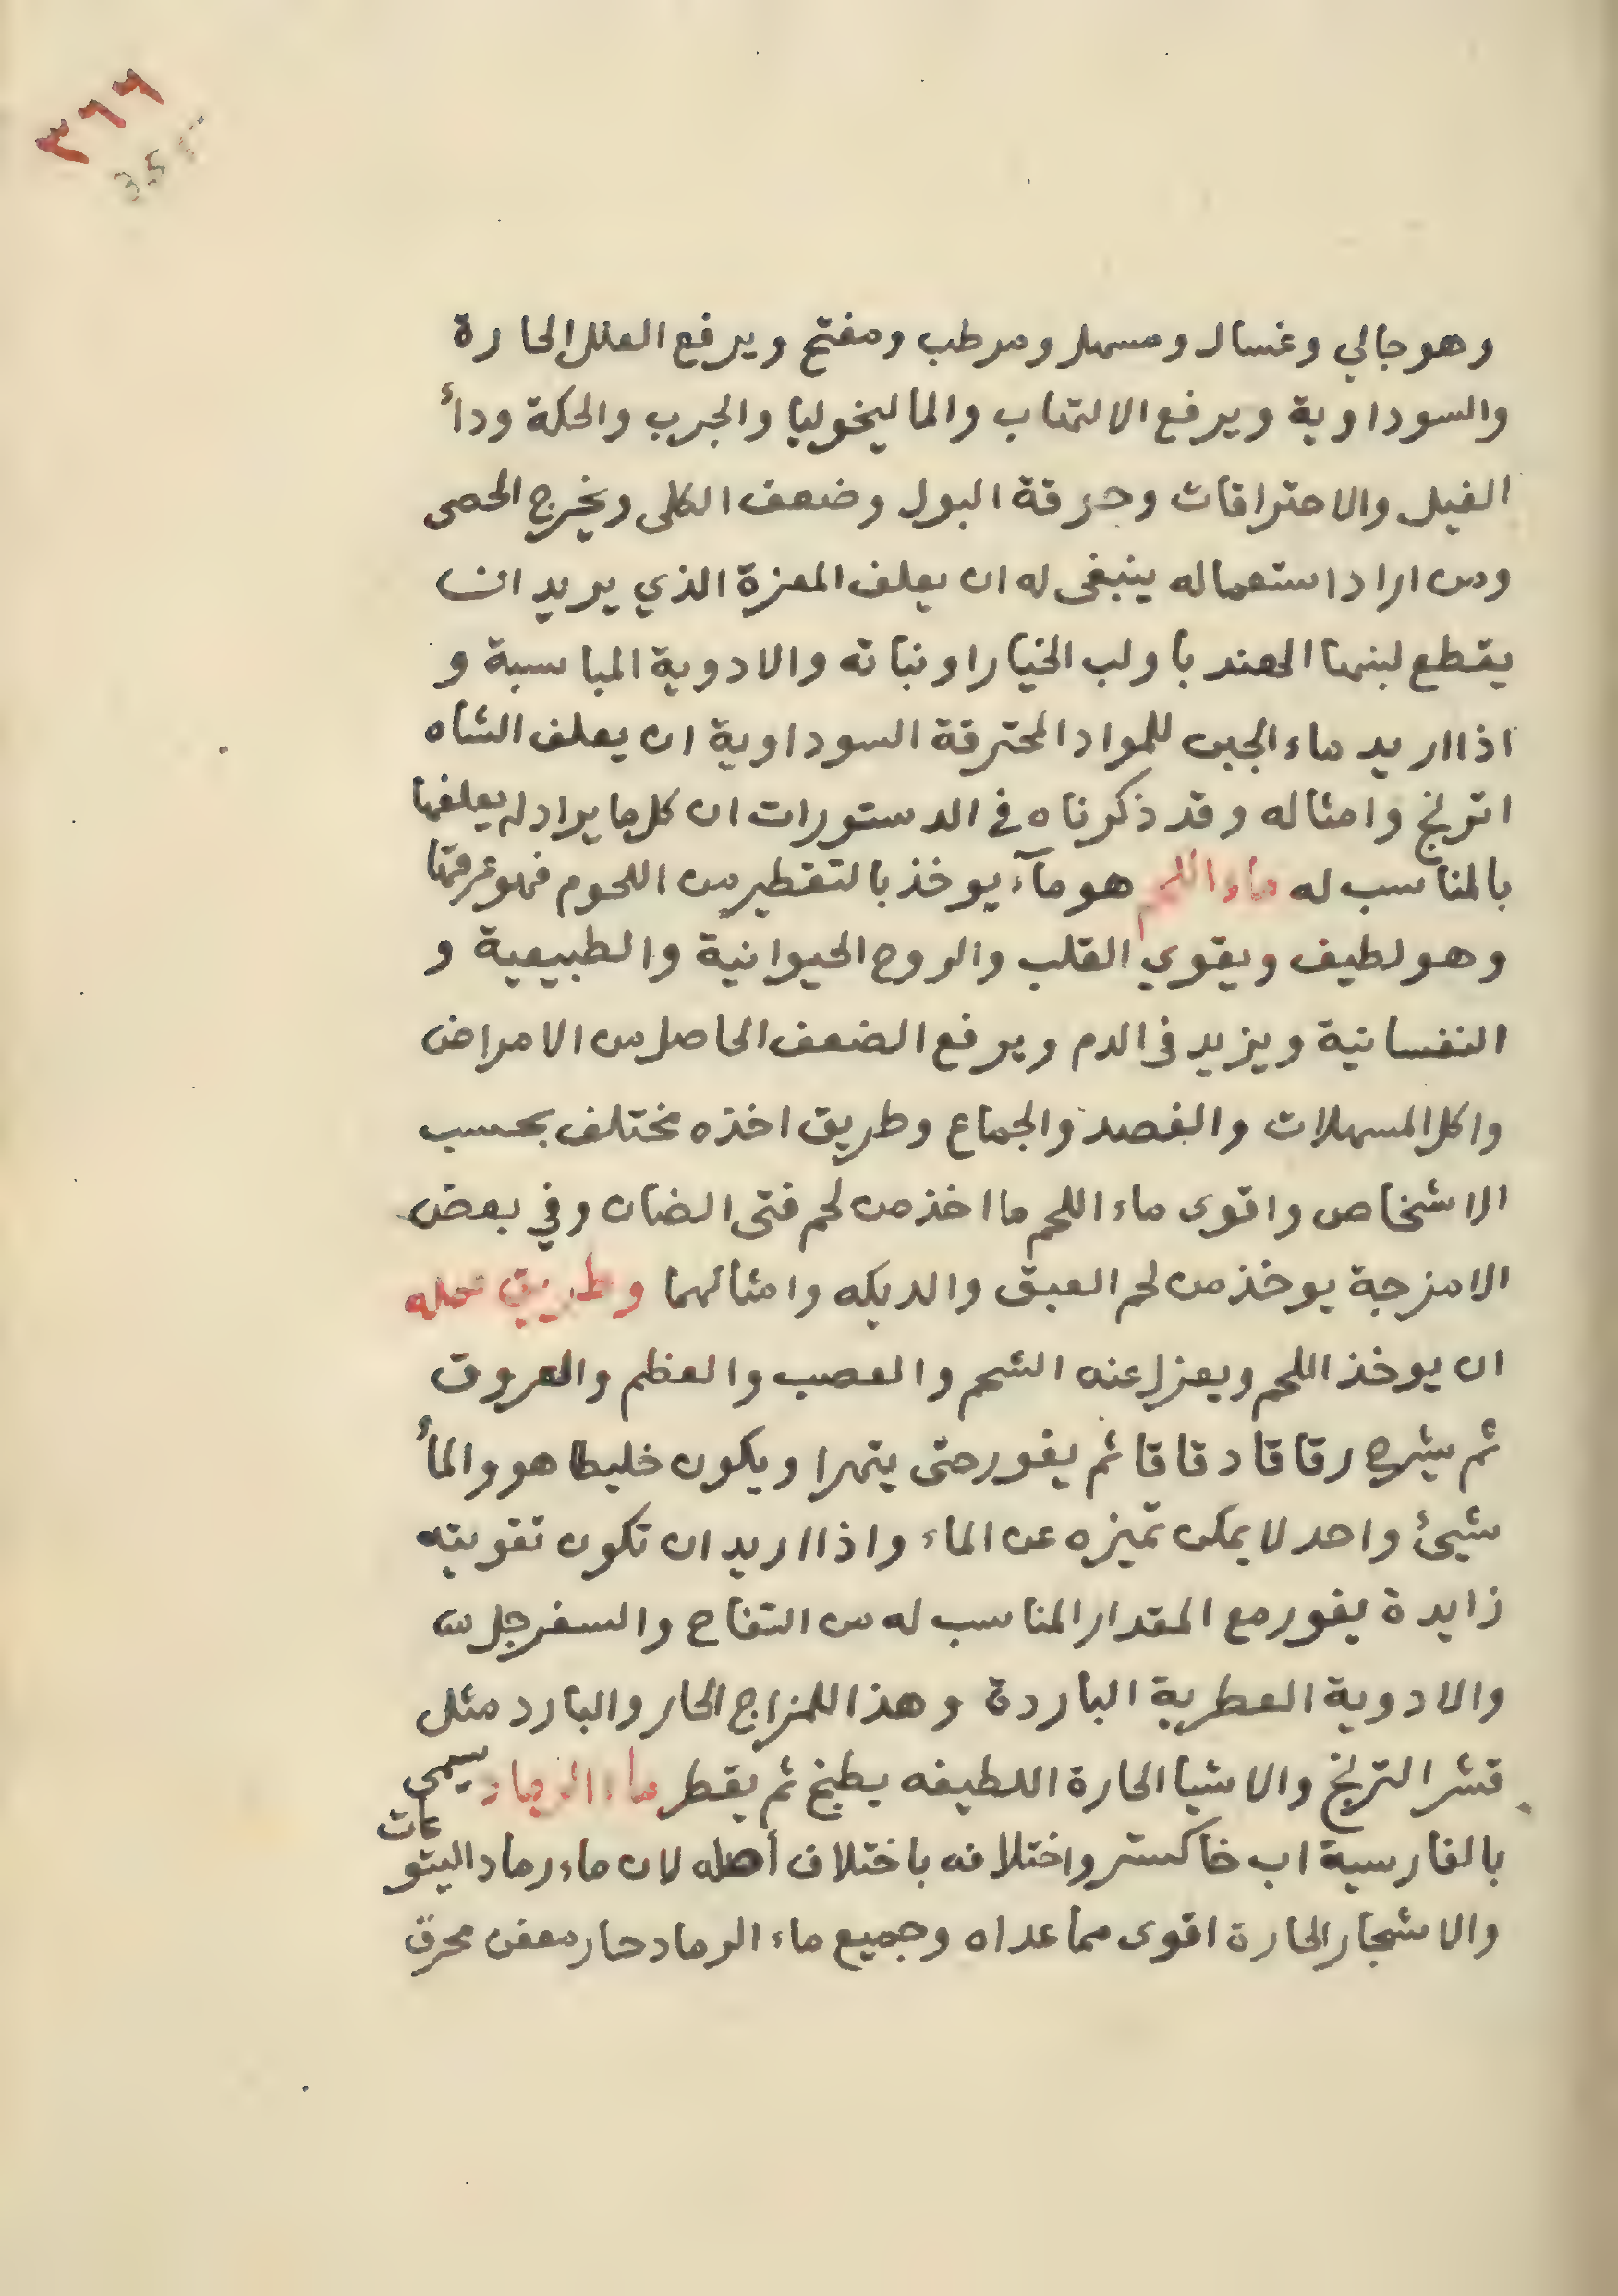 ٣٦٦
355
وهو جالي وغسال ومسهل ومرطب ومفتح ويرفع العلل الحارة
والسوداوية ويرفع الالتهاب والماليخوليا والجرب والحكة ودأ
الفيل والاحتراقات وحرقة البول وضعف الكلى ويخرج الحصى
ومن اراد استعماله ينبغى له ان يعلف المعزة الذي يريد ان
يقطع لبنها الهندبا ولب الخيار او نباته والادوية المباسبة و
اذا اريد ماء الجبن للمواد المحترقة السوداوية ان يعلف الشاه
اترنج وامثاله وقد ذكرناه في الدستورات ان كل ما يراد له يعلفها
بالمناسب له ماء اللحم هو مآء يوخذ بالتقطير من اللحوم فهو عرقها
وهو لطيف ويقوي القلب والروح الحيوانية والطبيعية و
النفسانية ويزيد فى الدم ويرفع الضعف الحاصل من الامراض
واكل المسهلات والفصد والجماع وطريق اخذه مختلف بحسب
الاشخاص واقوى ماء اللحم ما اخذ من لحم فتى الضان وفي بعض
الامزجة يوخذ من لحم العبق والديكه وامثالهما وطريق عمله
ان يوخذ اللحم ويعزل عنه الشحم والعصب والعظم والعروق
ثم يشرح رقاقا دقاقا ثم يفور حتى يتهرا ويكون خليطا هو والمأ
شيئ واحد لا يمكن تميزه عن الماء واذا اريد ان تكون تقويته
زايدة يفور مع المقدار المناسب له من التفاح والسفرجل
والادوية العطرية الباردة وهذا للمزاج الحار والبارد مثل
قشر الترنج والاشيا الحارة اللطيفه يطبخ ثم يقطر ماء الرماد يسمى
بالفارسية اب خاكستر واختلافه باختلاف أهله لان ماء رماد اليتوعات
والاشجار الحارة اقوى مما عداه وجميع ماء الرماد حار معفن محرق